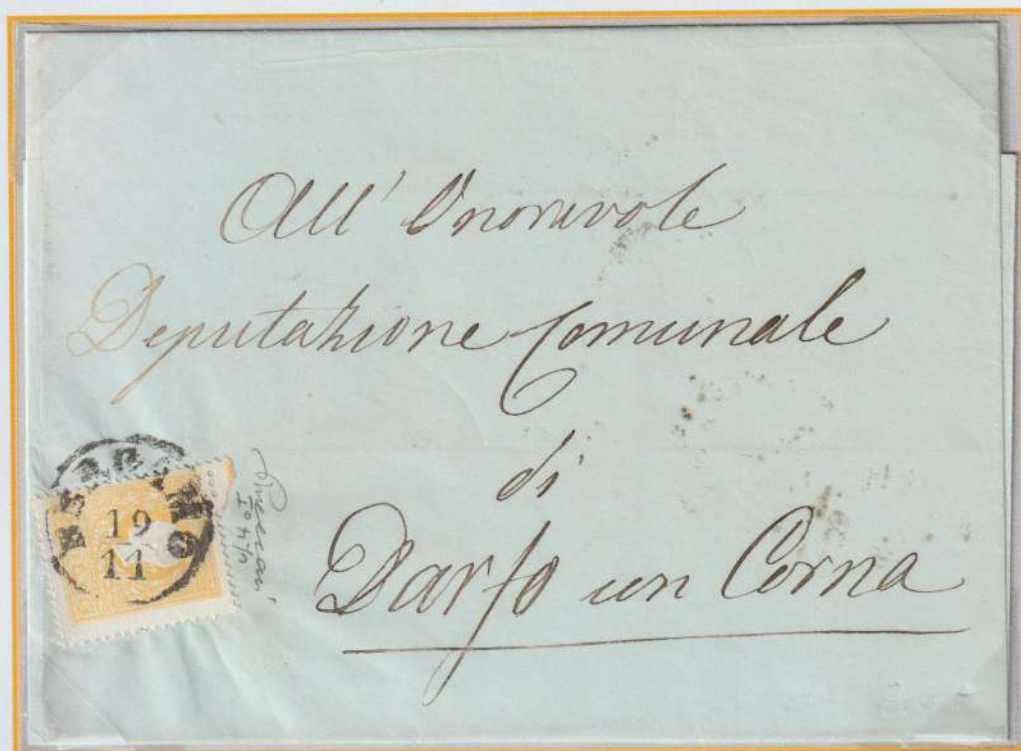 All' Onorevole
Deputazione Comunale
di
Darfo con Corna
BERGAMO
19
11